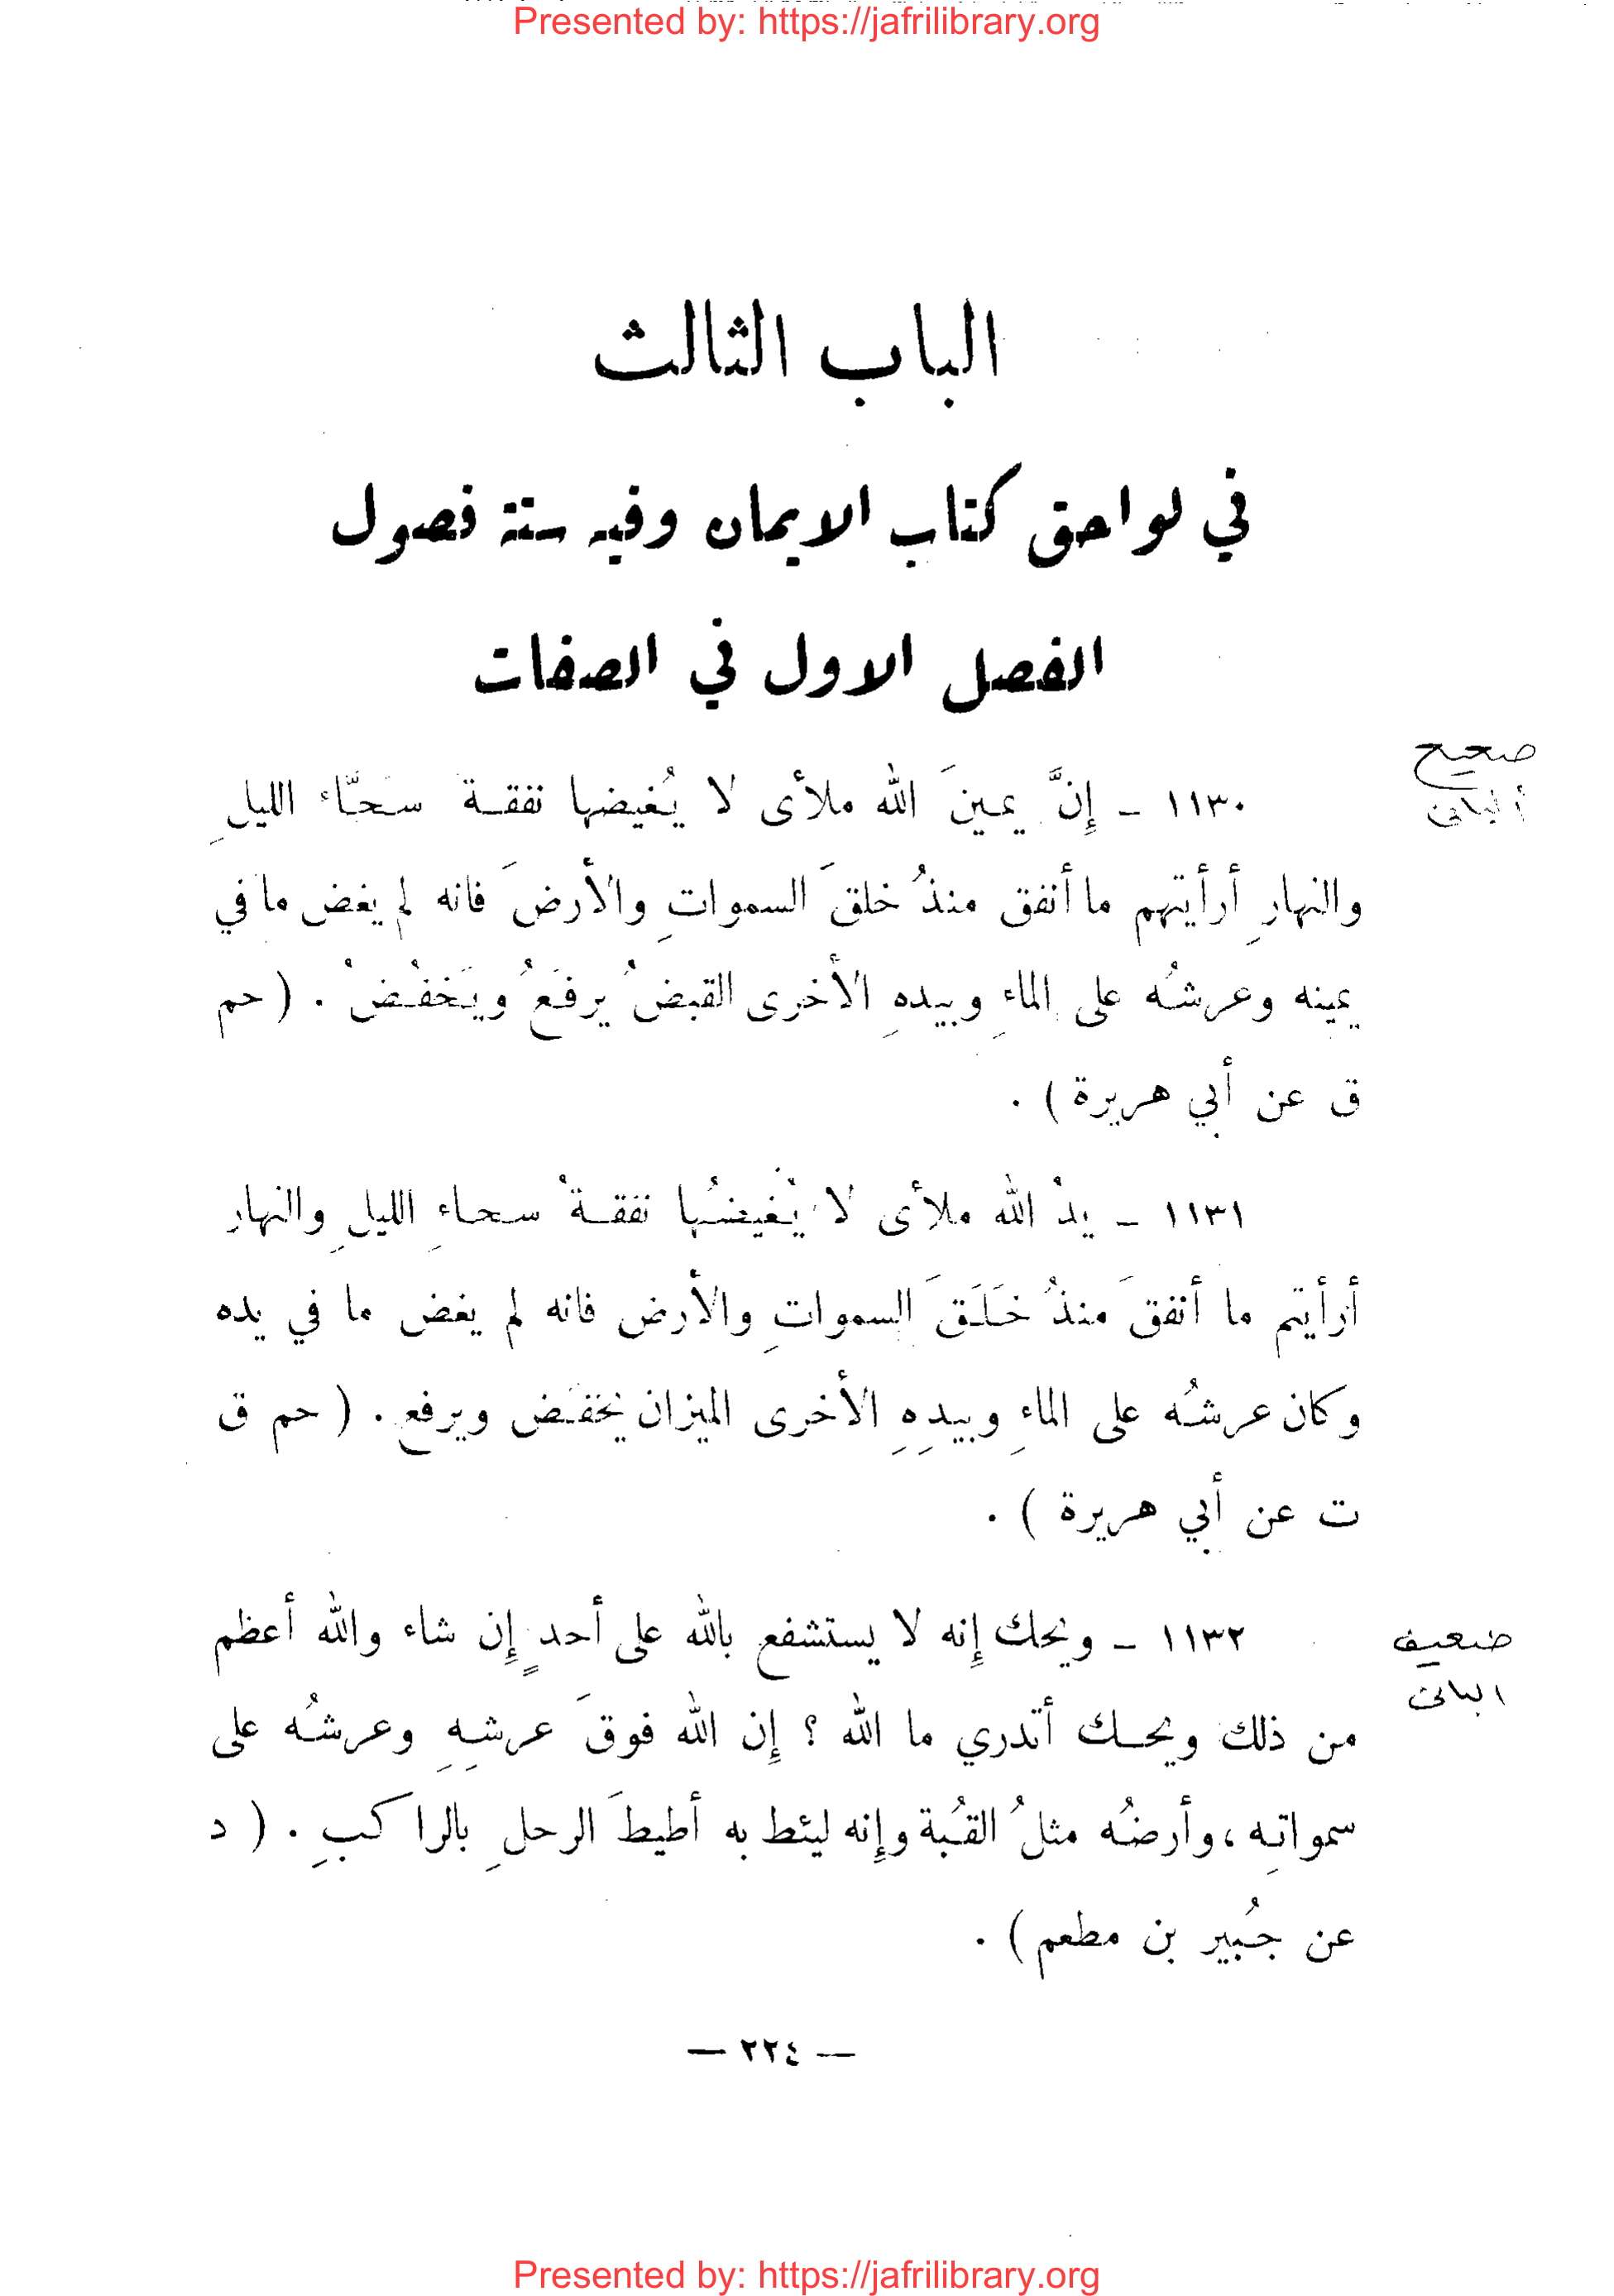 Presented by: https://jafrilibrary.org
الباب الثالث
في لواحق كتاب الايمان وفيه ستة فصول
الفصل الاول في الصفات
صحيح
ألبانى
١١٣٠ ـ إِنَّ يمينَ الله ملأى لا يُغيضها نفقـة سحَّاء الليلِ
والنهارِ أرأيتهم ما أنفق منذُ خلقَ السمواتِ والأرضَ فانه لم يغض ما في
يمينه وعرشُه على الماءِ وبيدهِ الأخرى القبضُ يرفَعُ ويَخفُضُ . ( حم
ق عن أبي هريرة ) .
١١٣١ ـ يدُ الله ملأى لا يُغيضُها نفقـةُ سحاءِ الليلِ والنهار
أرأيتم ما أنفقَ منذُ خَلَقَ السمواتِ والأرض فانه لم يغض ما في يده
وكان عرشُه على الماءِ وبيدِهِ الأخرى الميزان يخفَض ويرفع . ( حم ق
ت عن أبي هريرة ) .
ضعيف
البانى
١١٣٢ ـ ويحك إِنه لا يستشفع بالله على أحدٍ إِن شاء والله أعظم
من ذلك ويحـك أتدري ما الله ؟ إِن الله فوقَ عرشِهِ وعرشُه على
سمواتِه ، وأرضُه مثلُ القُبة وإِنه ليئط به أطيطَ الرحلِ بالراكبِ . ( د
عن جُبير بن مطعم ) .
— ٢٢٤ —
Presented by: https://jafrilibrary.org